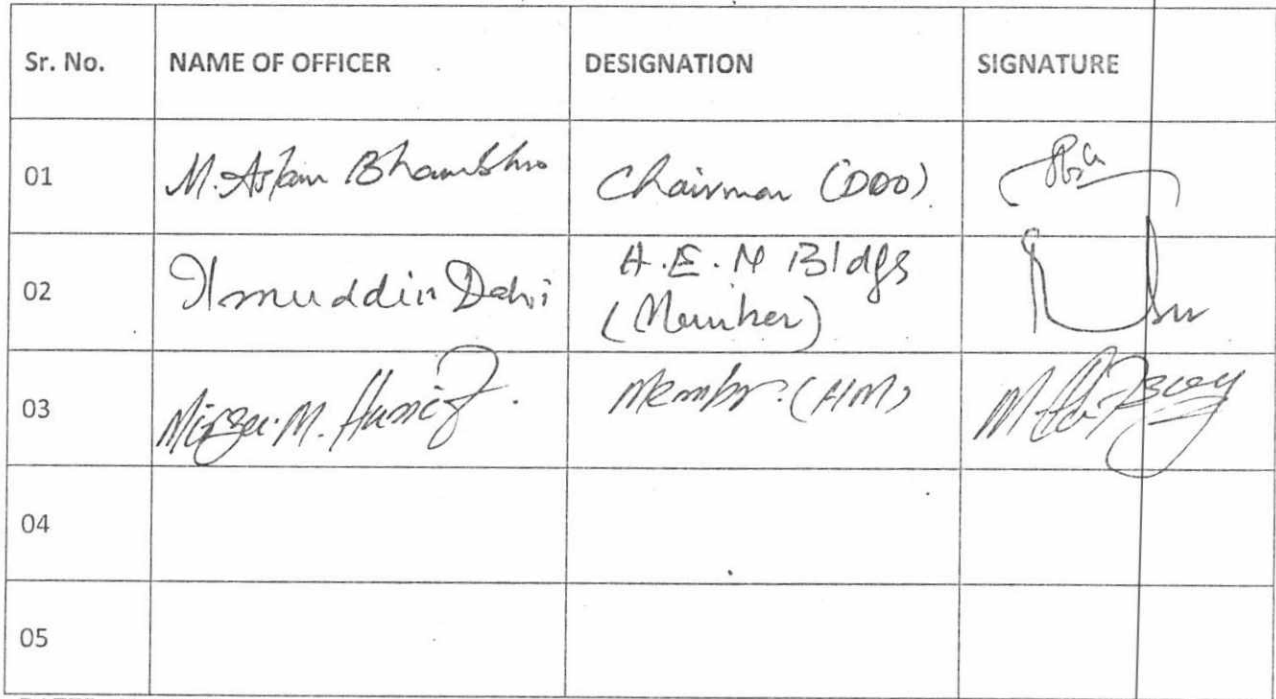 Sr. No. NAME OF OFFICER DESIGNATION SIGNATURE
01 M. Aslam Bhambhro Chairman (DDO)
02 Ilmuddin Dahri A.E.N Bldgs
(Member)
03 Mirza M. Hanif Member (HM)
04
05